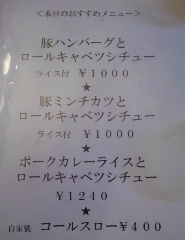 <本日のおすすめメニュー>
豚ハンバーグと
ロールキャベツシチュー
ライス付 ¥1000
★
豚ミンチカツと
ロールキャベツシチュー
ライス付 ¥1000
★
ポークカレーライスと
ロールキャベツシチュー
¥1240
★
自家製 コールスロー¥400